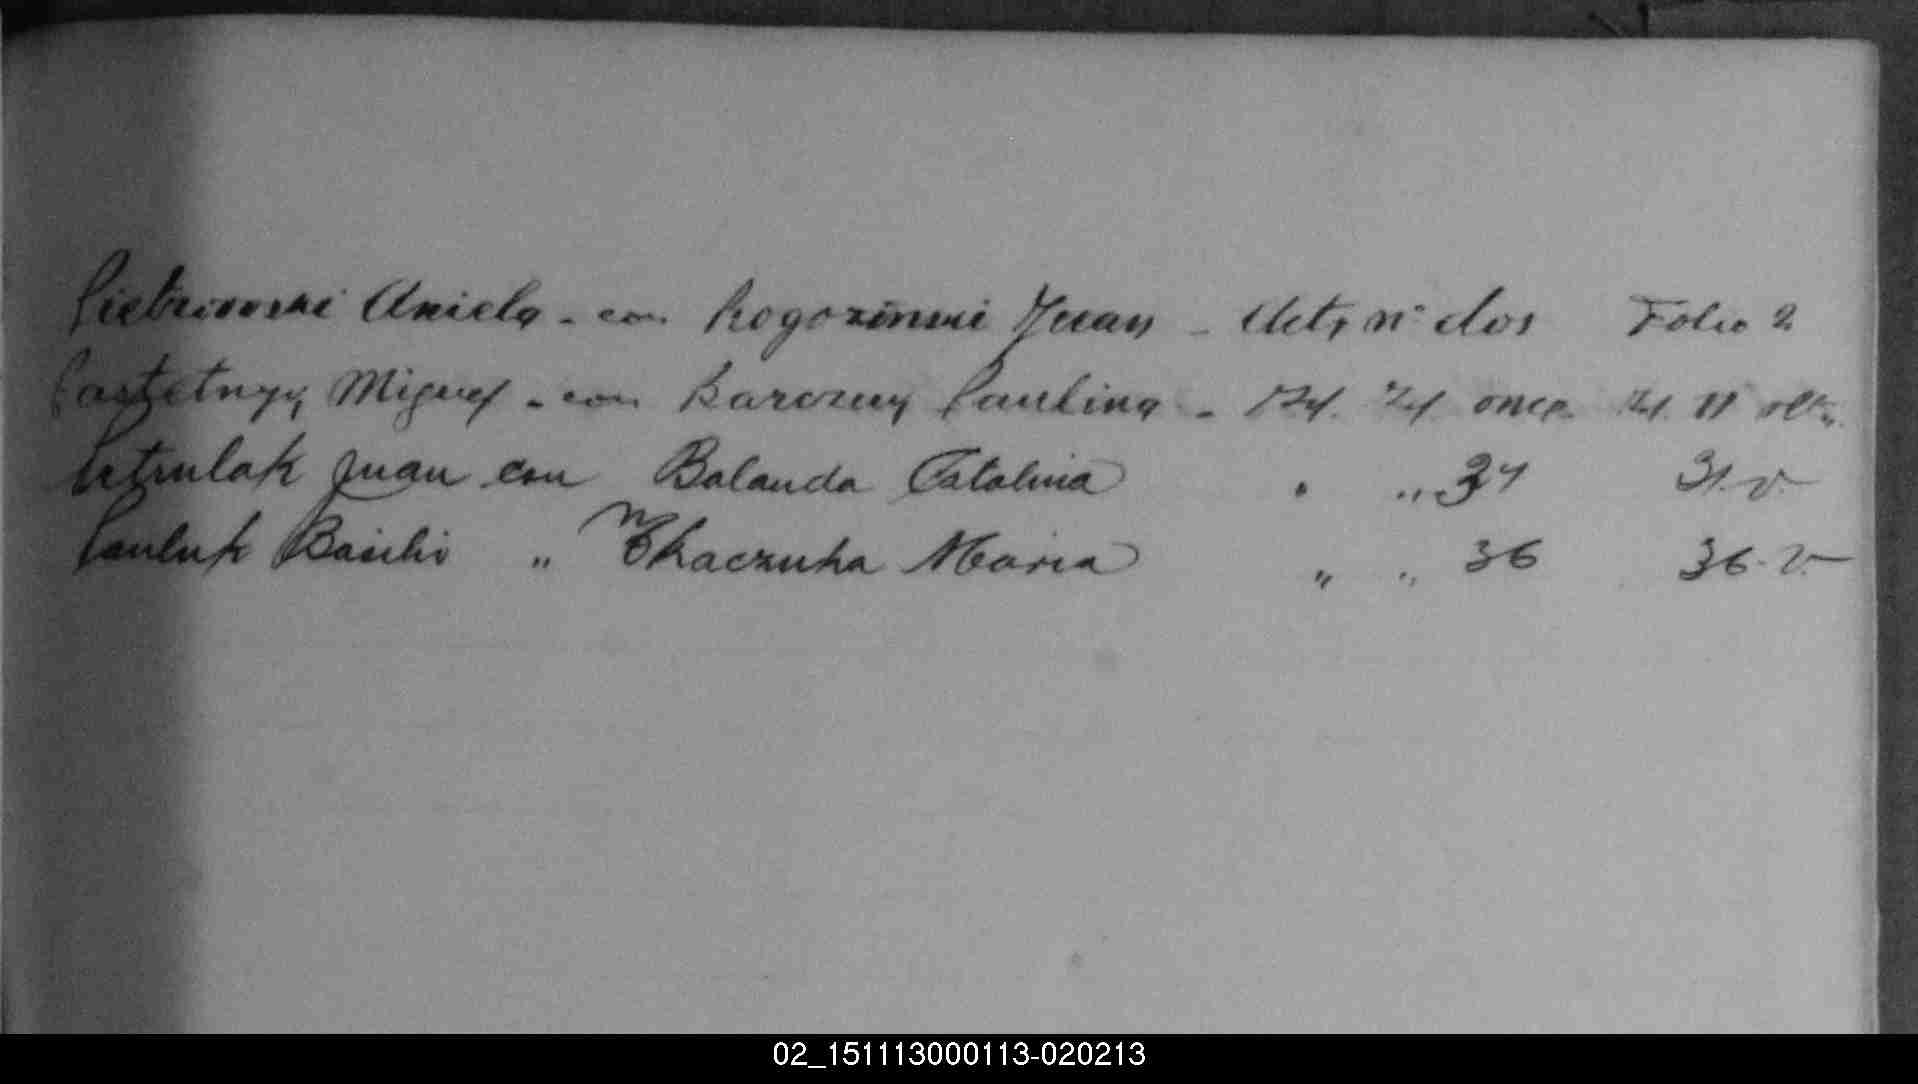 Aniela - con Rogozinski Juan - Acta nº dos Folio 2
Miguel - con Karczuy Paulina - Id. Id. once Id. 11 vlta.
Petrulak Juan con Balanda Catalina " " 31 v.
Pauluk Basilio " Tkaczuka Maria " " 36 36 v.
02_151113000113-020213